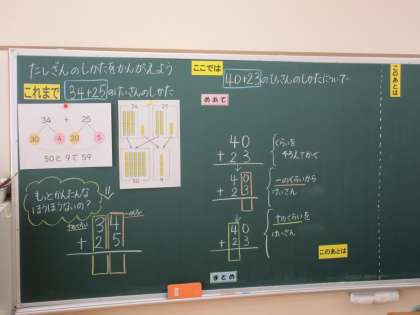 たしざんのしかたをかんがえよう
これまで
34+25のけいさんのしかた
34 + 25
30 4 20 5
50と9で59
もっとかんたんな
ほうほうないの?
十のくらい
一のくらい
3 4
+ 2 5
ここでは
40+23のひっさんのしかたについて
めあて
4 0
+ 2 3
くらいを
そろえてかく
4 0
+ 2 3
一のくらいから
けいさん
4 0
+ 2 3
十のくらいを
けいさん
まとめ
このあとは
このあとは